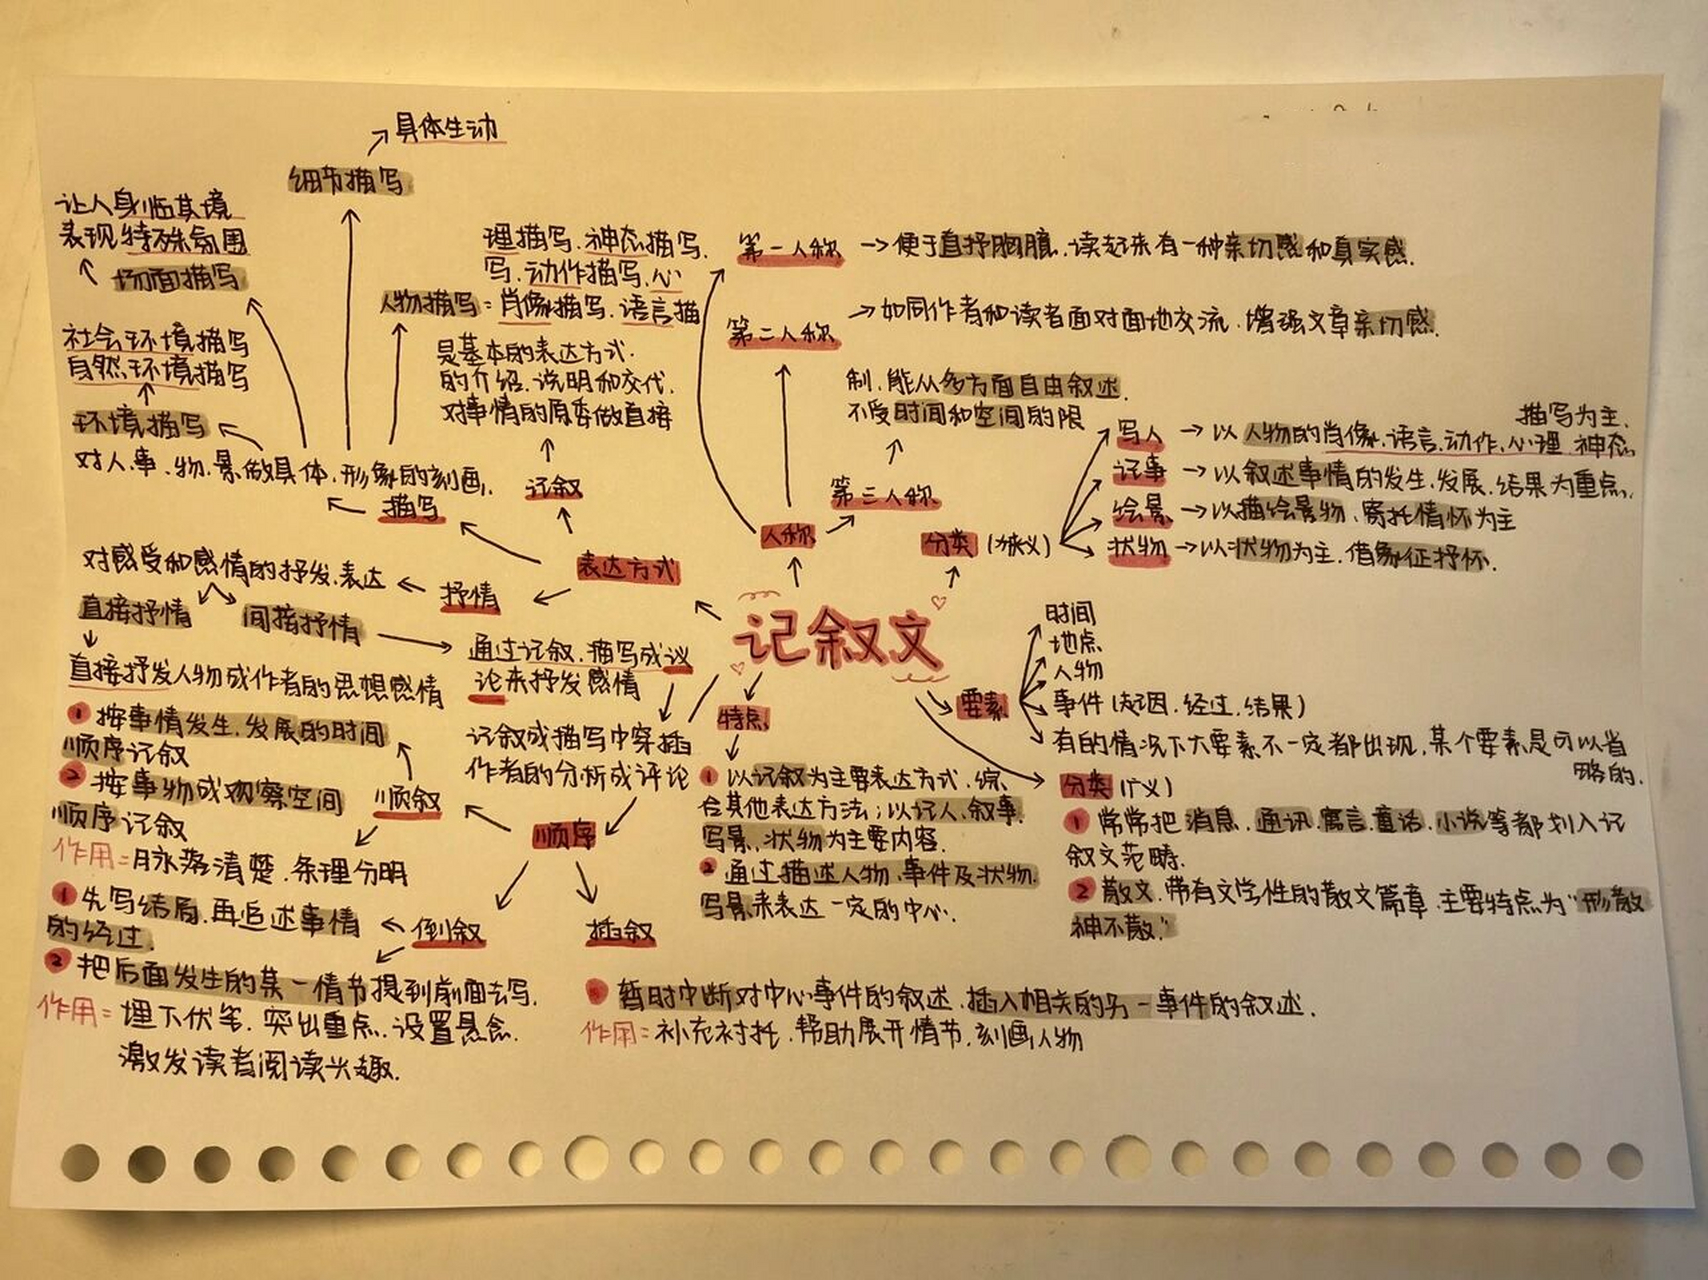 具体生动
细节描写
让人身临其境
表现特殊氛围
场面描写
社会环境描写
自然环境描写
环境描写
对人、事、物、景做具体、形象的刻画。
描写
理描写、神态描写.
写、动作描写、心
人物描写:肖像描写、语言描
是基本的表达方式.
的介绍、说明和交代.
对事情的原委做直接
记叙
表达方式
对感受和感情的抒发、表达
抒情
直接抒情
间接抒情
直接抒发人物或作者的思想感情
通过记叙、描写或议
论来抒发感情
记叙或描写中穿插
作者的分析或评论
第一人称 → 便于直抒胸臆、读起来有一种亲切感和真实感.
第二人称 → 如同作者和读者面对面地交流、增强文章亲切感.
制、能从多方面自由叙述.
不受时间和空间的限
第三人称
人称
分类(狭义)
描写为主.
写人 → 以人物的肖像、语言、动作、心理、神态
记事 → 以叙述事情的发生、发展、结果为重点.
绘景 → 以描绘景物、寄托情怀为主
状物 → 以状物为主、借象征抒怀.
记叙文
要素
时间
地点
人物
事件(起因、经过、结果)
有的情况下六要素不一定都出现,某个要素是可以省
略的.
特点
① 以记叙为主要表达方式、综
合其他表达方法;以记人、叙事、
写景、状物为主要内容.
② 通过描述人物、事件及状物、
写景来表达一定的中心.
分类(广义)
① 常常把消息、通讯、寓言、童话、小说等都划入记
叙文范畴.
② 散文、带有文学性的散文篇章、主要特点为"形散
神不散."
顺序
顺叙
① 按事情发生、发展的时间
顺序记叙
② 按事物或观察空间
顺序记叙
作用:脉络清楚、条理分明
倒叙
① 先写结局、再追述事情
的经过.
② 把后面发生的某一情节提到前面去写.
作用:埋下伏笔、突出重点、设置悬念.
激发读者阅读兴趣.
插叙
暂时中断对中心事件的叙述、插入相关的另一事件的叙述.
作用:补充衬托、帮助展开情节、刻画人物